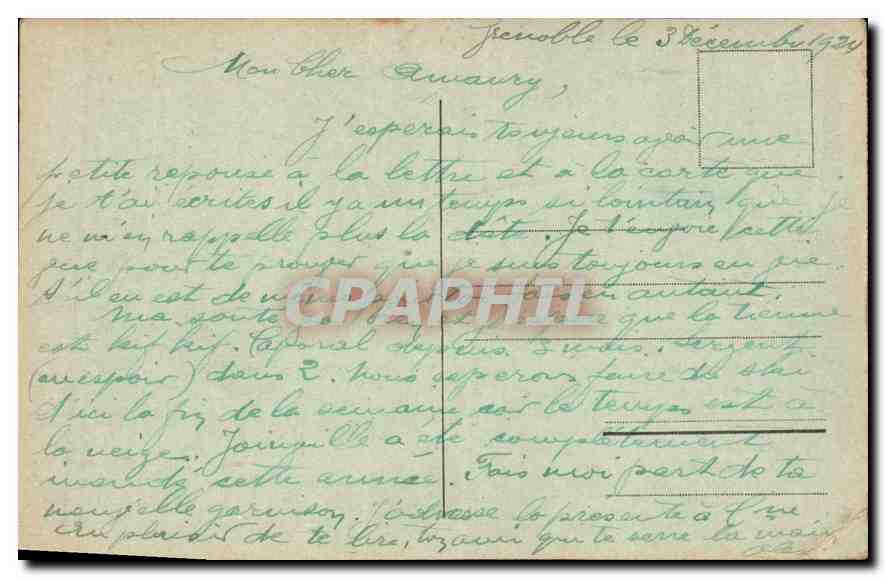 Grenoble le 3 Décembre 1924
Mon Cher Amaury,
J'esperais toujours avoir une
petite reponse à la lettre et à la carte que
je t'ai écrites il y a un temps si lointain que je
ne m'en rappelle plus la date. Je t'envoie cette
pour te prouver que je suis toujours en vie.
S'il en est de même fais en autant.
CPAPHIL
Ma santé est que la tienne
est kif kif. Caporal depuis 3 mois. Sergent
(en espoir) dans 2. Nous esperons faire du ski
d'ici la fin de la semaine car le temps est à
la neige. Joinville a été complètement
inondé cette année. Fais moi part de ta
nouvelle garnison. J'adresse la presente à
Au plaisir de te lire, ton ami qui te serre la main